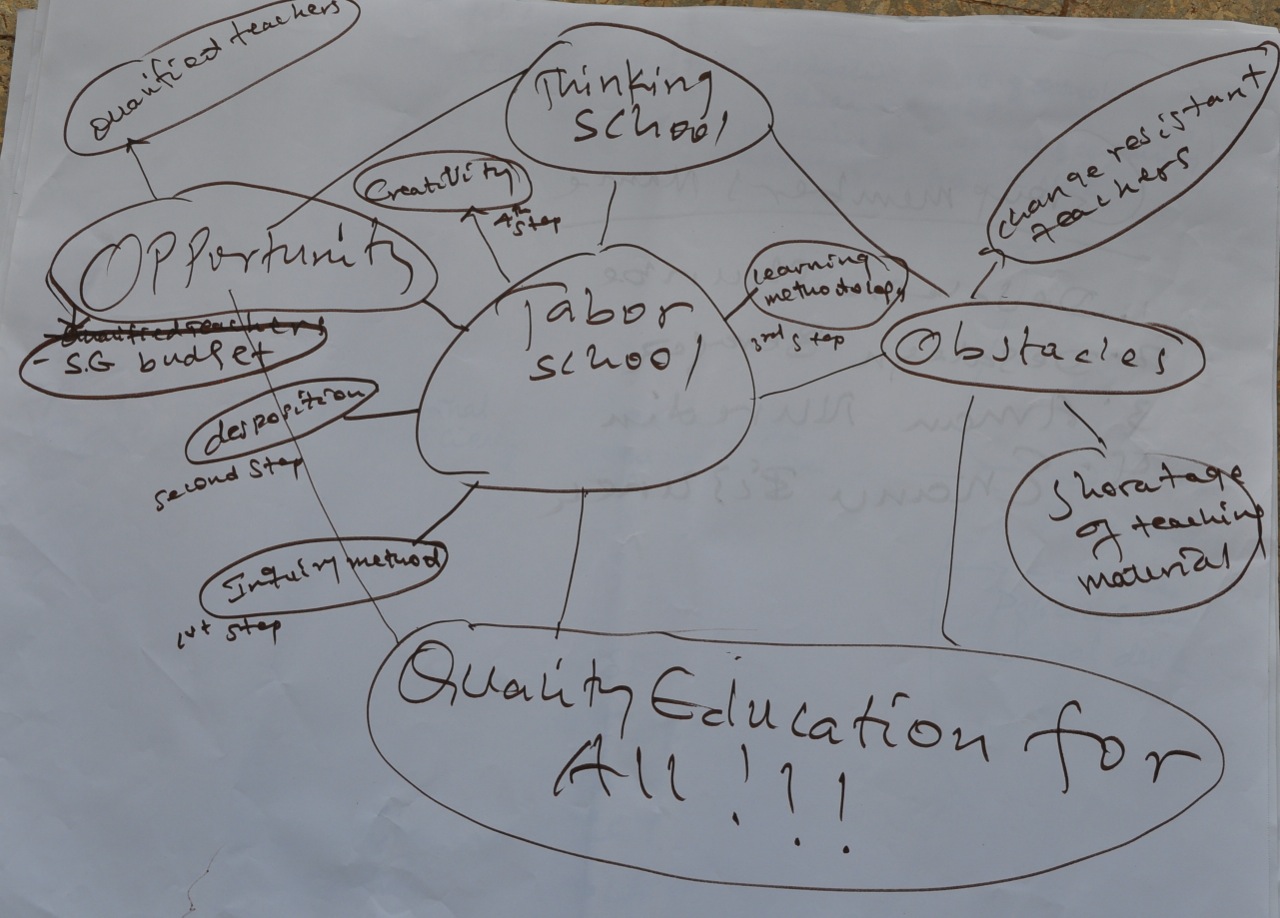 Qualified teachers
Thinking
School
change resistant
teachers
Creativity
4th
Step
Opportunity
Learning
methodology
3rd Step
Tabor
school
Obstacles
Qualified teachers
- S.G budget
desposition
second Step
Shoratage
of teaching
material
Inquiry method
1st Step
Quality Education for
All!!!